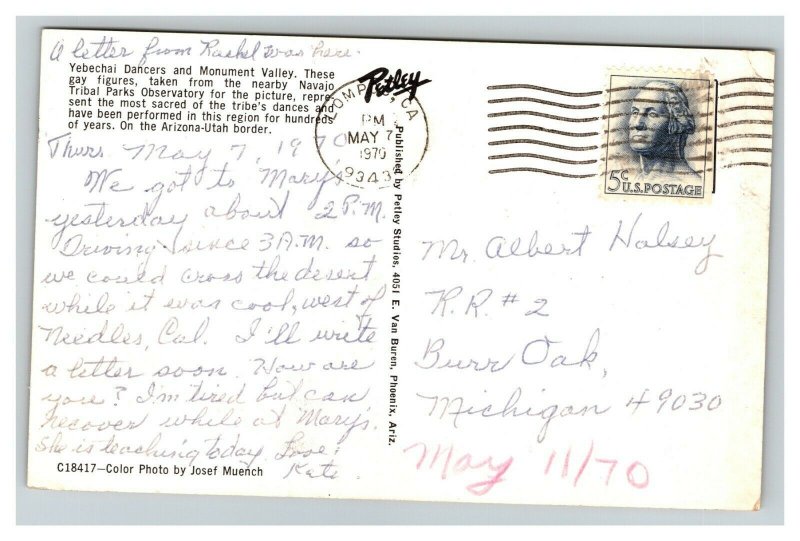 A letter from Rachel was here.
Yebechai Dancers and Monument Valley. These
gay figures, taken from the nearby Navajo
Tribal Parks Observatory for the picture, repre-
sent the most sacred of the tribe's dances and
have been performed in this region for hundreds
of years. On the Arizona-Utah border.
Petley
LOMPOC, CA
PM
MAY 7
1970
9343
5c
U.S. POSTAGE
Thurs. May 7, 1970
We got to Mary's
yesterday about 2 P.M.
Driving since 3 A.M. so
we could cross the desert
while it was cool, west of
Needles, Cal. I'll write
a letter soon. How are
you? I'm tired but can
recover while at Mary's.
She is teaching today. Love,
Kate
C18417—Color Photo by Josef Muench
Published by Petley Studios, 4051 E. Van Buren, Phoenix, Ariz.
Mr. Albert Halsey
R.R. # 2
Burr Oak,
Michigan 49030
May 11/70